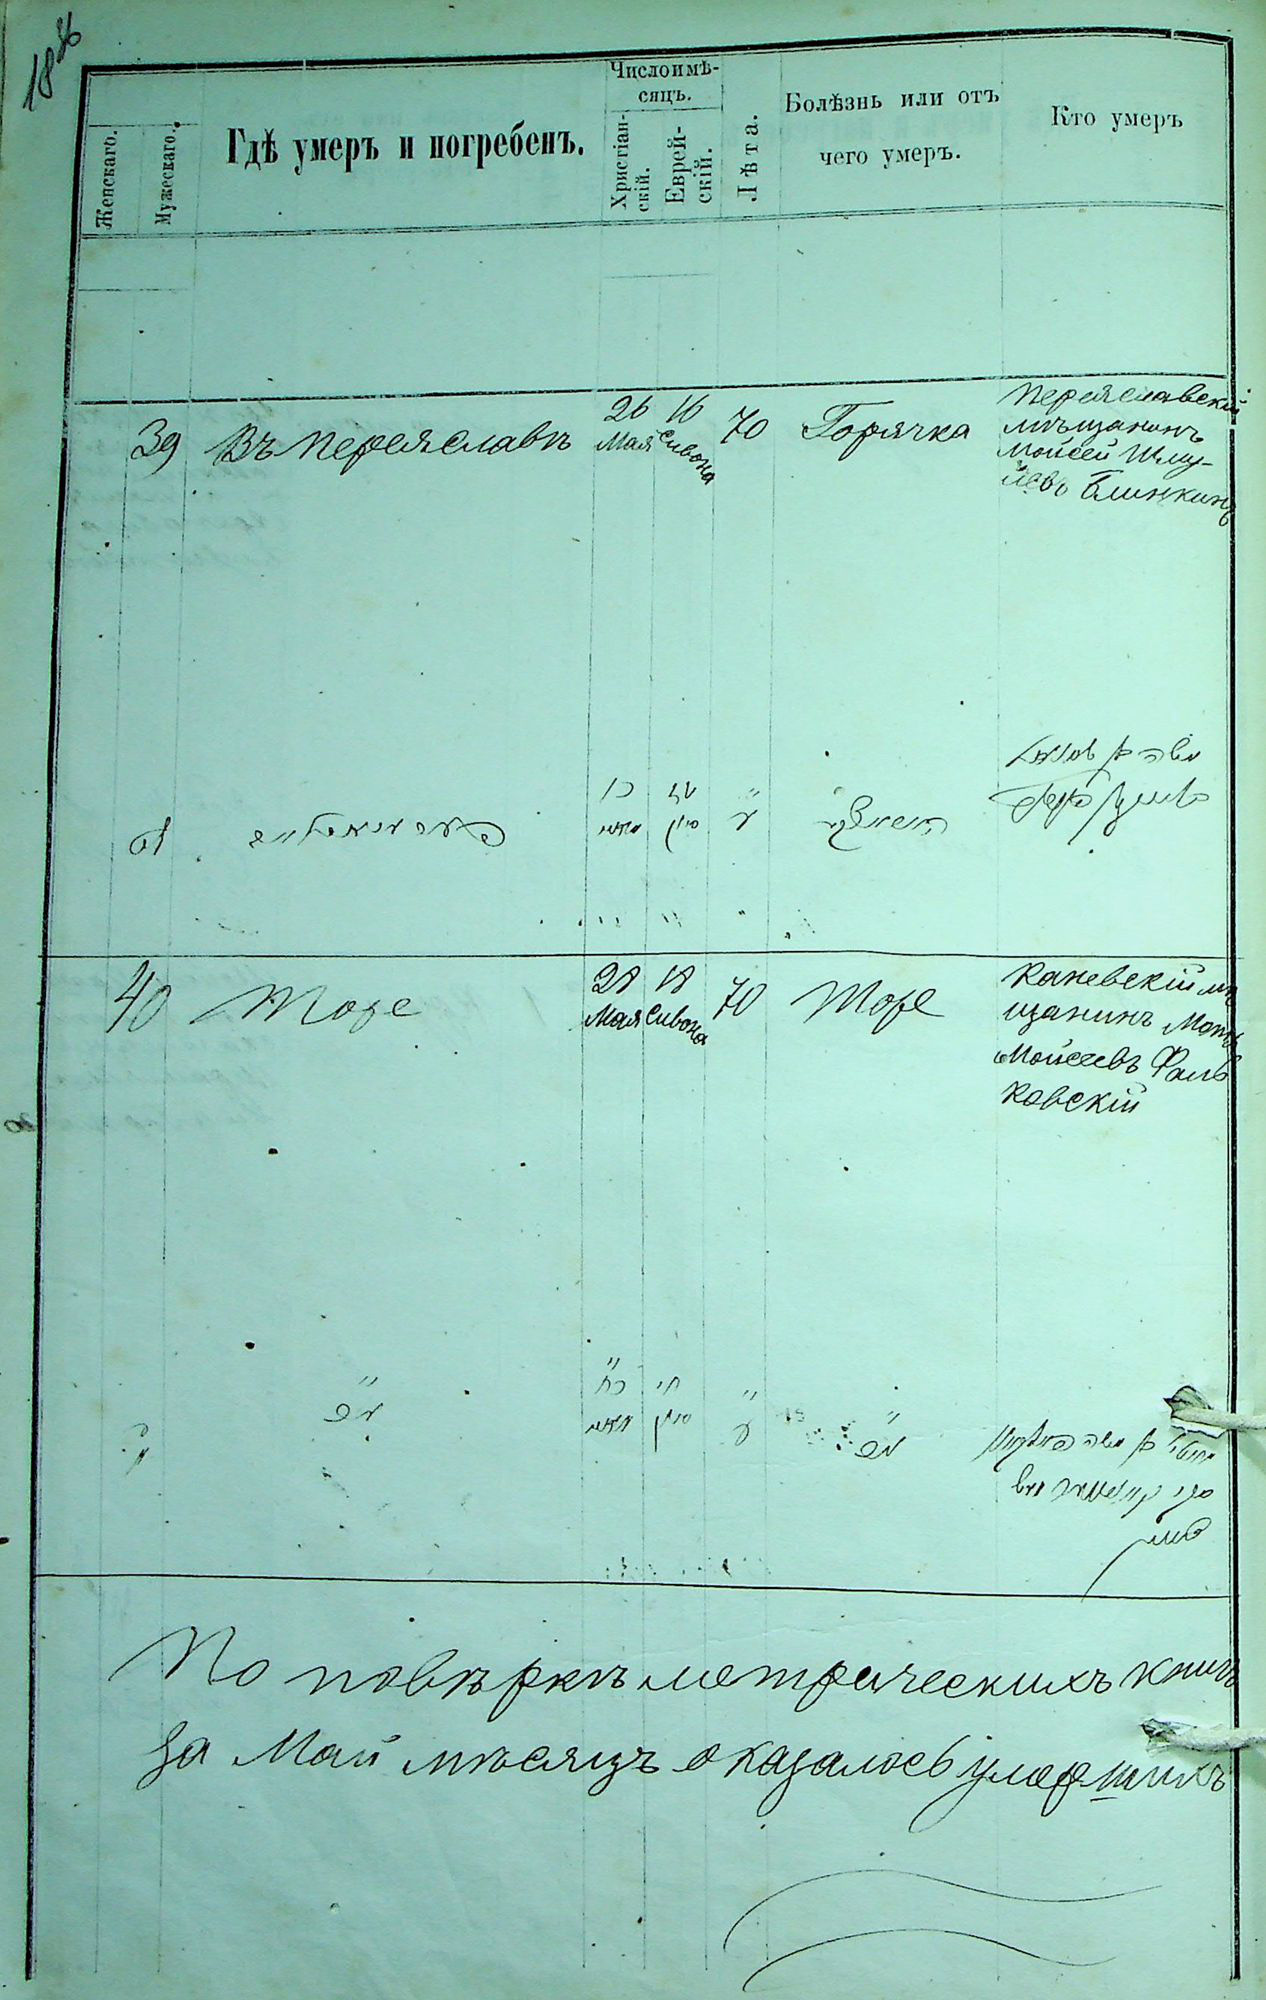 18
Женскаго.
Мужескаго.
Гдѣ умеръ и погребенъ.
Число и мѣ-
сяцъ.
Христіан-
скій.
Еврей-
скій.
Лѣта.
Болѣзнь или отъ
чего умеръ.
Кто умеръ
39
Въ Переяславѣ
26
Мая
16
Сивона
70
Горячка
Переяславскій
мѣщанинъ
Моисей Шму-
левъ Блинкинъ
לט
כו
מאי
טז
סיון
ע
משה בן
40
Тоже
28
Мая
18
Сивона
70
Тоже
Каневскій мѣ
щанинъ
Моисеевъ Фаль
ковскій
מ
כח
מאי
חי
סיון
ע
בן משה
По повѣркѣ метрическихъ книгъ
за Май мѣсяцъ оказалось умершихъ